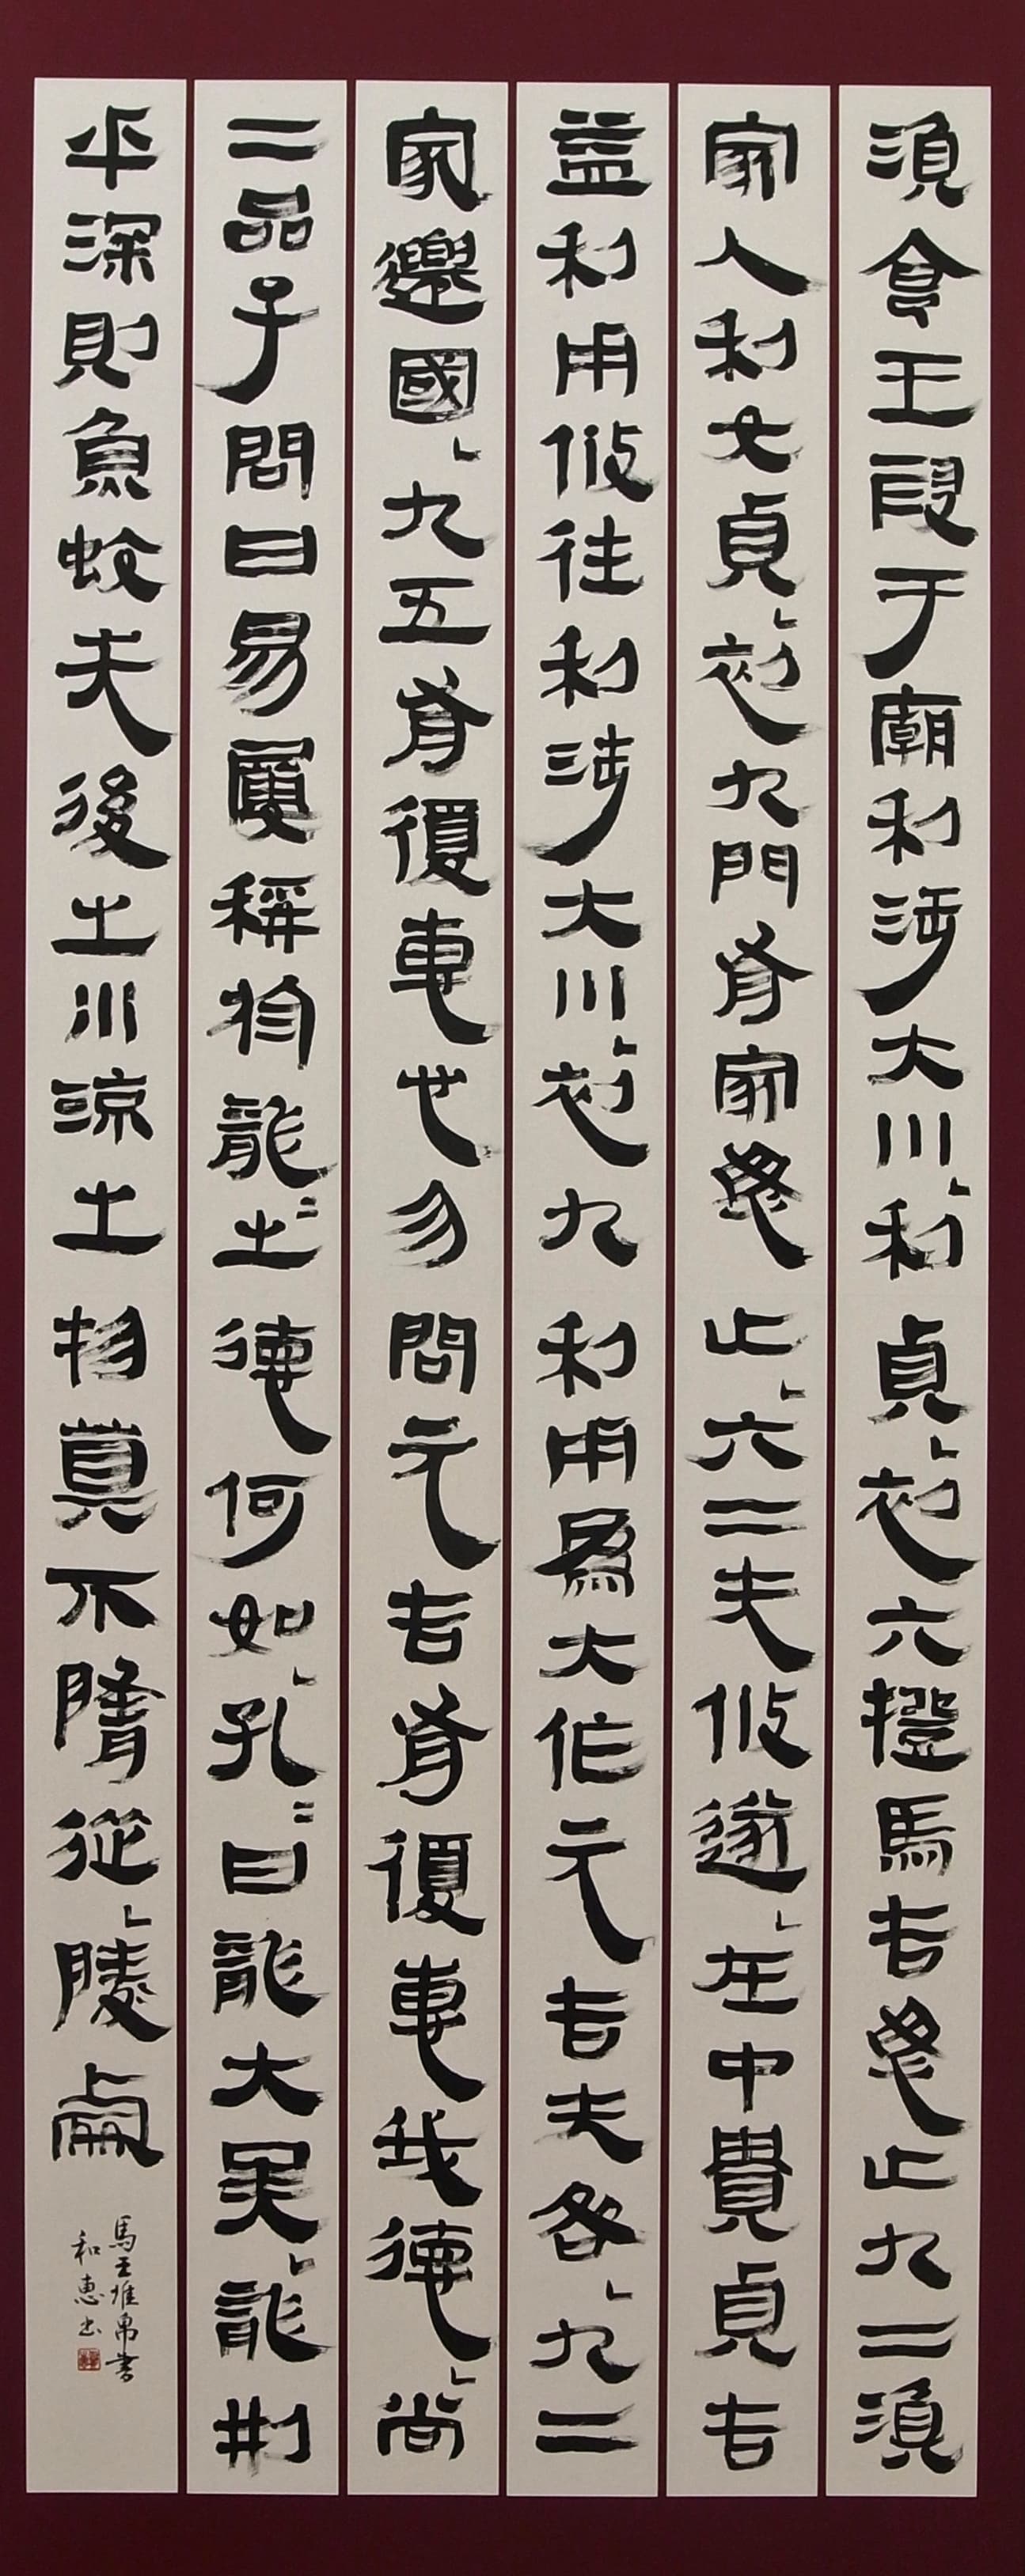 渙食王叚于廟利涉大川利貞初六撜馬吉悔亡九二渙
家人利女貞初九門有家悔亡六二无攸遂在中貴貞吉
益利用攸往利涉大川初九利用爲大作元吉无咎九二
家遷國九五有復惠心勿問元吉有復惠我德尚
二品子問曰易屢稱於龍=之德何如孔=曰龍大矣龍刑
平深則魚蛟先後之川流之物莫不隋從陵處
馬王堆帛書
和惠书